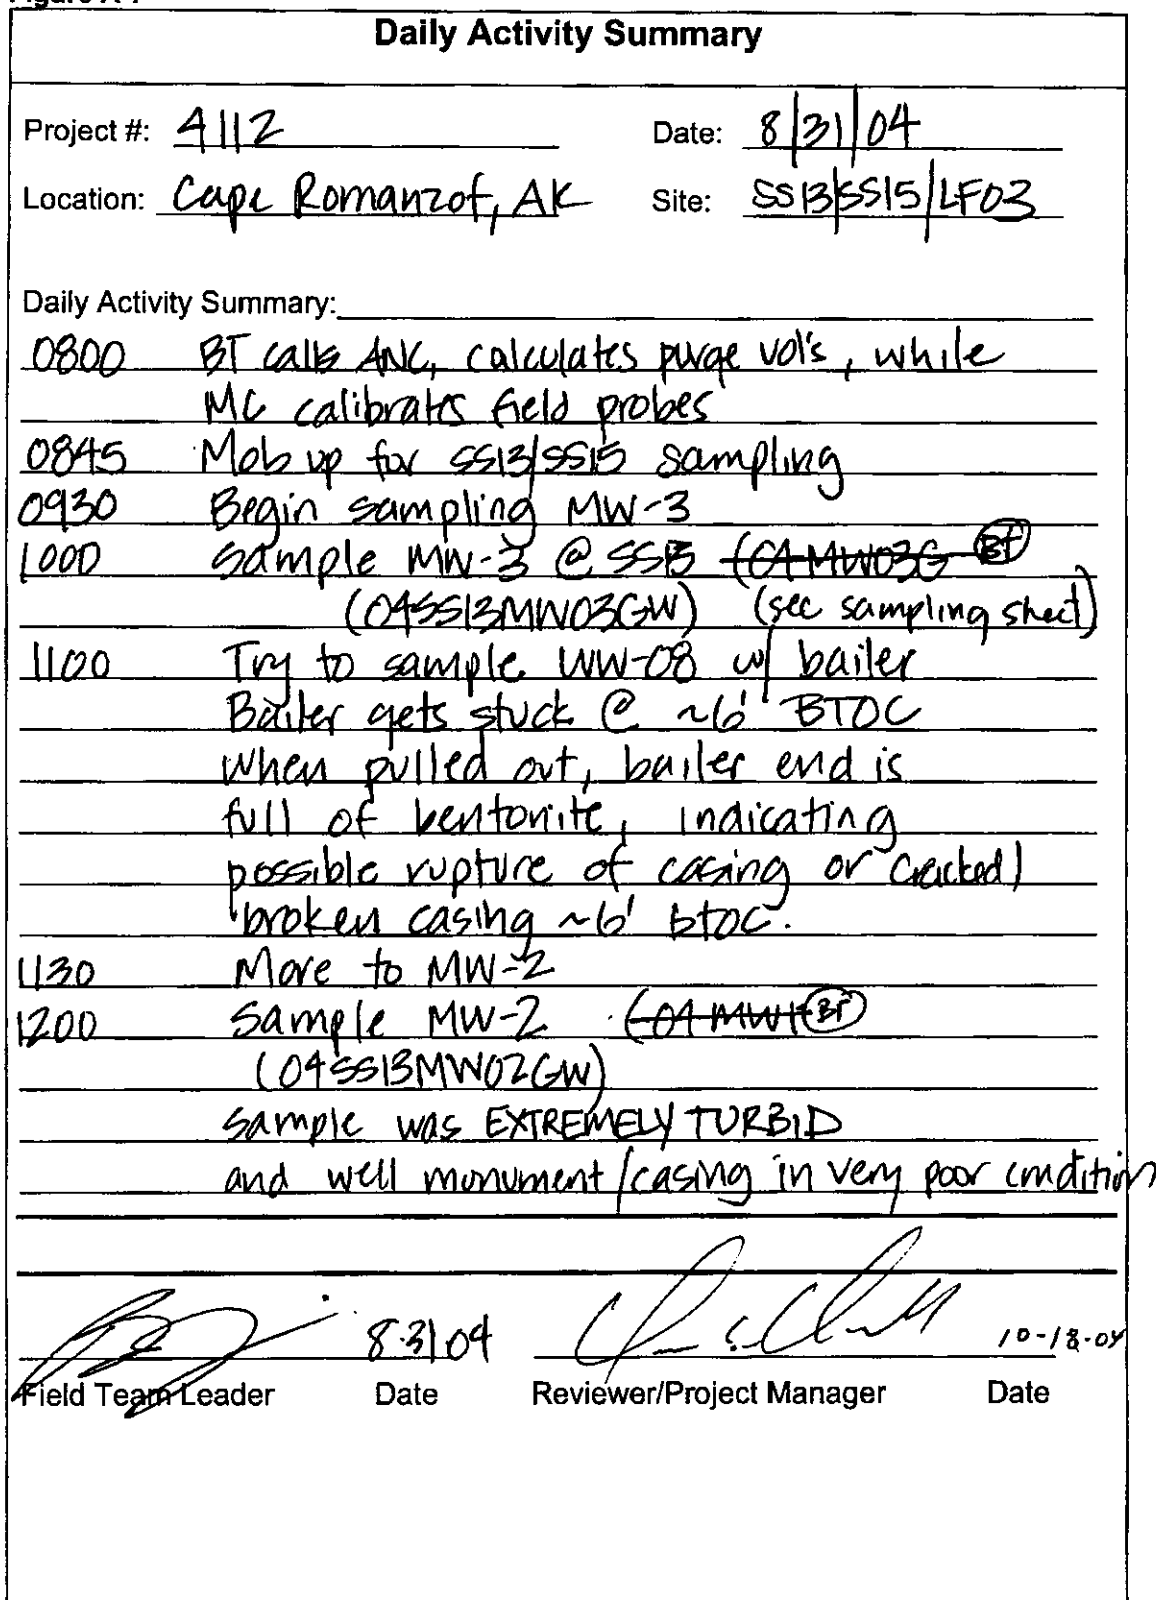 Daily Activity Summary
Project #: 4112 Date: 8/31/04
Location: Cape Romanzof, AK Site: SS13/SS15/LF03
Daily Activity Summary:
0800 BT calls ANC, calculates purge vol's, while
MC calibrates field probes
0845 Mob up for SS13/SS15 sampling
0930 Begin sampling MW-3
1000 Sample MW-3 @ SS13 (04MW03G BT
(04SS13MW03GW) (see sampling sheet)
1100 Try to sample WW-08 w/ bailer
Bailer gets stuck @ ~6' BTOC
When pulled out, bailer end is
full of bentonite, indicating
possible rupture of casing or cracked/
broken casing ~6' btoc.
1130 Move to MW-2
1200 Sample MW-2 (04MW BT
(04SS13MW02GW)
Sample was EXTREMELY TURBID
and well monument/casing in very poor condition
8-31-04 10-18-04
Field Team Leader Date Reviewer/Project Manager Date